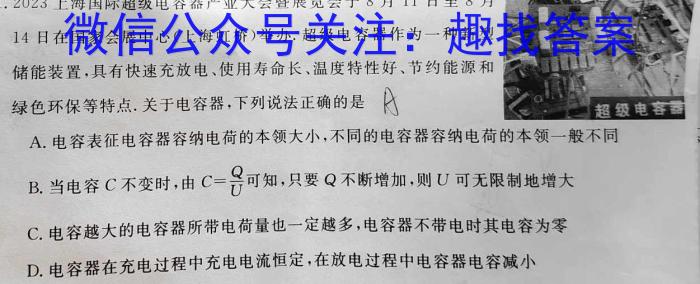 .2023上海国际超级电容器产业大会暨展览会于8月11日至8月
14日在国家会展中心(上海虹桥)举办.超级电容器作为一种
微信公众号关注：趣找答案
储能装置,具有快速充放电、使用寿命长、温度特性好、节约能源和
绿色环保等特点.关于电容器,下列说法正确的是 A
超级电容器
A. 电容表征电容器容纳电荷的本领大小,不同的电容器容纳电荷的本领一般不同
B. 当电容 C 不变时,由 C=Q/U可知,只要 Q 不断增加,则 U 可无限制地增大
C. 电容越大的电容器所带电荷量也一定越多,电容器不带电时其电容为零
D. 电容器在充电过程中充电电流恒定,在放电过程中电容器电容减小